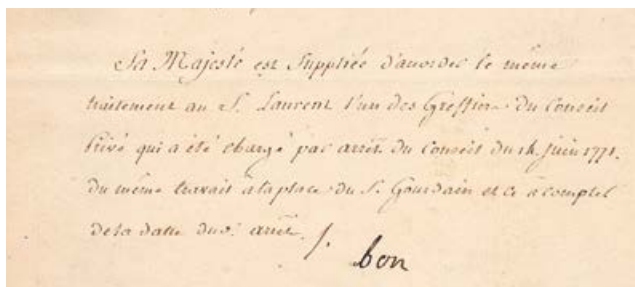 Sa Majesté est Suppliée d'acorder le même
traitement au S. Laurent l'un des Greffiers du Conseil
Privé qui a été chargé par arrêt du Conseil du 14 Juin 1771.
du même travail à la place du S. Gourdain et ce à compter
de la datte dud. arrêt.
bon